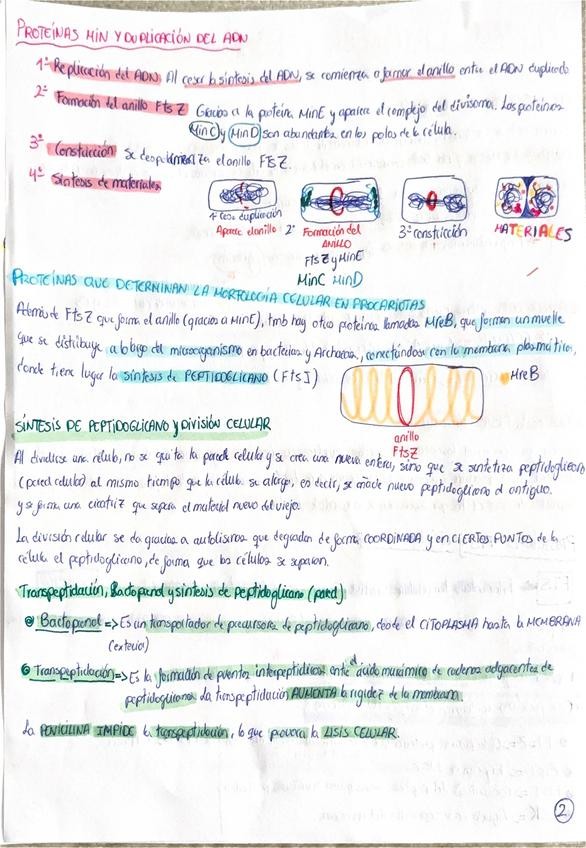 PROTEÍNAS MIN Y DUPLICACIÓN DEL ADN
1º Replicación del ADN: Al cesar la síntesis del ADN, se comienza a formar el anillo entre el ADN duplicado
2º Formación del anillo FtsZ Gracias a la proteína MinE y aparece el complejo del divisoma. Las proteínas
MinC y MinD son abundantes en los polos de la célula.
3º Constricción Se despolimeriza el anillo FtsZ.
4º Síntesis de materiales
1º Cesa duplicación
Aparece el anillo
2º Formación del
ANILLO
FtsZ y MinE
MinC MinD
3º constricción
MATERIALES
PROTEÍNAS QUE DETERMINAN LA MORFOLOGÍA CELULAR EN PROCARIOTAS
Además de FtsZ que forma el anillo (gracias a MinE), tmb hay otra proteína llamada MreB, que forman un muelle
que se distribuye a lo largo del microorganismo en bacterias y Archaeas, conectándose con la membrana plasmática,
donde tiene lugar la síntesis de PEPTIDOGLICANO (FtsI)
MreB
anillo
FtsZ
SÍNTESIS DE PEPTIDOGLICANO Y DIVISIÓN CELULAR
Al dividirse una célula, no se quita la pared celular y se crea una nueva entera, sino que se sintetiza peptidoglicano
(pared celular) al mismo tiempo que la célula se alarga, es decir, se añade nuevo peptidoglicano al antiguo.
y se forma una cicatriz que separa el material nuevo del viejo.
La división celular se da gracias a autolisinas que degradan de forma COORDINADA y en CIERTOS PUNTOS de la
célula el peptidoglicano, de forma que las células se separan.
Transpeptidación, Bactoprenol y síntesis de peptidoglicano (pared)
Bactoprenol => Es un transportador de precursores de peptidoglicano, desde el CITOPLASMA hasta la MEMBRANA
(exterior)
Transpeptidación => Es la formación de puentes interpeptídicos entre el ácido murámico de cadenas adyacentes de
peptidoglicano. La transpeptidación AUMENTA la rigidez de la membrana.
La PENICILINA IMPIDE la transpeptidación, lo que provoca la LISIS CELULAR.
2